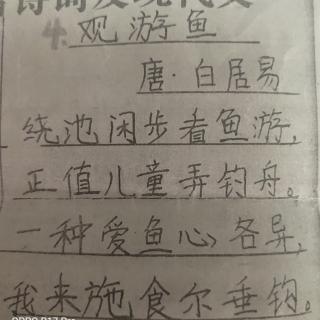 4.观游鱼
唐·白居易
绕池闲步看鱼游,
正值儿童弄钓舟。
一种爱鱼心各异,
我来施食尔垂钩。